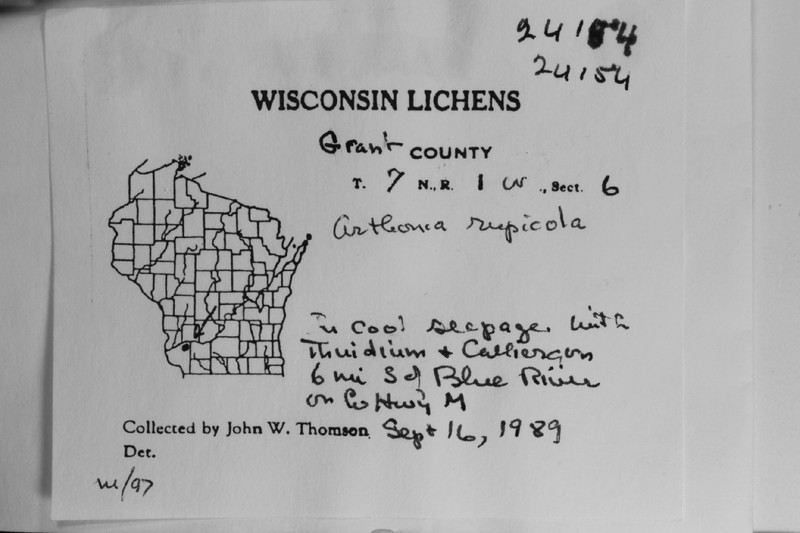 24154
24154
WISCONSIN LICHENS
Grant COUNTY
T. 7 N., R. 1 W ., Sect. 6
Arthonia rupicola
In cool seepage with
Thuidium + Calliergon
6 mi S of Blue River
on Co Hwy M
Collected by John W. Thomson Sept 16, 1989
Det.
/97